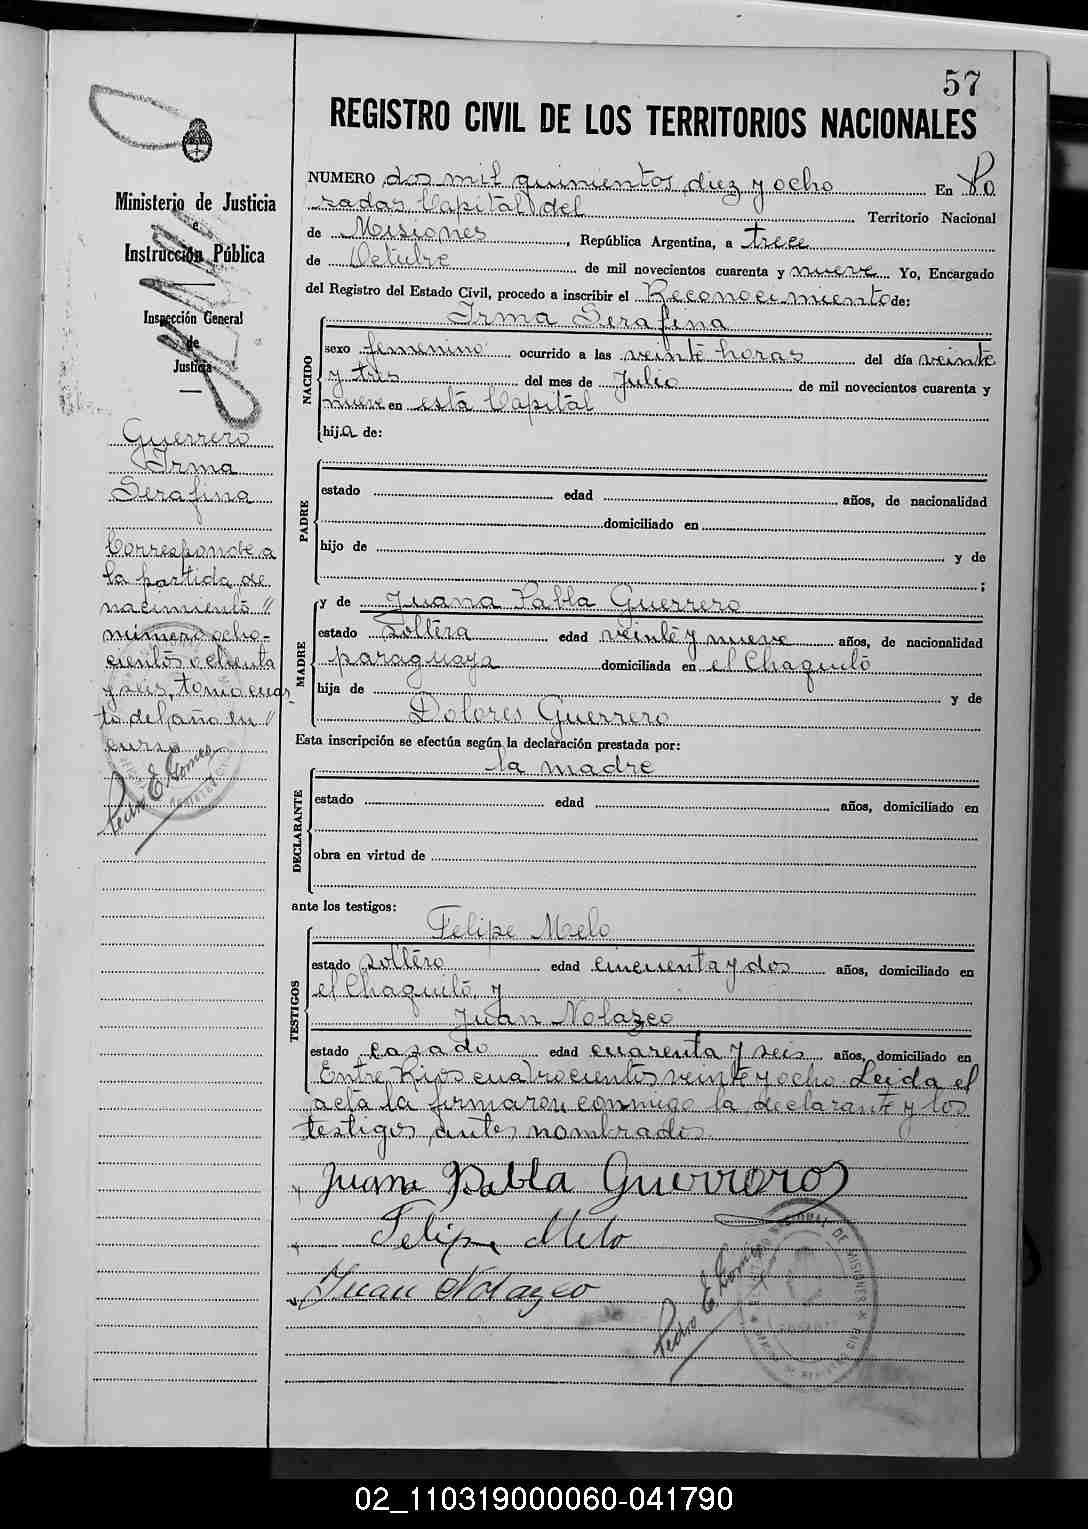 57
REGISTRO CIVIL DE LOS TERRITORIOS NACIONALES
Ministerio de Justicia
e
Instrucción Pública
Inspección General
de
Justicia
Guerrero
Irma
Serafina
Corresponde a
la partida de
nacimiento "
número ocho-
cientos ochenta
y seis, tomo cuar-
to del año en "
curso
Pedro E Gomes
NUMERO dos mil quinientos diez y ocho En Po
sadas Capital del Territorio Nacional
de Misiones, República Argentina, a trece
de Octubre de mil novecientos cuarenta y nueve Yo, Encargado
del Registro del Estado Civil, procedo a inscribir el Reconocimiento de:
NACIDO
Irma Serafina
sexo femenino ocurrido a las veinte horas del día veinte
y tres del mes de Julio de mil novecientos cuarenta y
nueve en esta Capital
hija de:
PADRE
estado edad años, de nacionalidad
domiciliado en
hijo de y de
;
MADRE
y de Juana Pabla Guerrero
estado soltera edad veinte y nueve años, de nacionalidad
paraguaya domiciliada en el Chaquito
hija de y de
Dolores Guerrero
Esta inscripción se efectúa según la declaración prestada por:
la madre
DECLARANTE
estado edad años, domiciliado en
obra en virtud de
ante los testigos:
TESTIGOS
Felipe Melo
estado soltero edad cincuenta y dos años, domiciliado en
el Chaquito y
Juan Nolazco
estado casado edad cuarenta y seis años, domiciliado en
Entre Rios cuatrocientos veinte y ocho. Leida el
acta la firmaron conmigo la declarante y los
testigos antes nombrados.
Juana Pabla Guerrero
Felipe Melo
Juan Nolazco
Pedro E Gomes
02_110319000060-041790